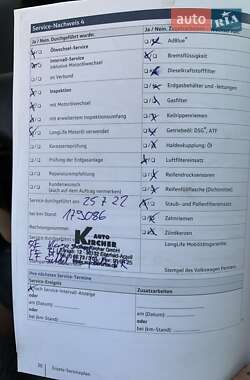 Service-Nachweis 4
Ja / Nein, Durchgeführt wurde:
Ölwechsel-Service
Intervall-Service
inklusive Motorölwechsel
im Verbund
Inspektion
mit Motorölwechsel
mit erweitertem Inspektionsumfang
LongLife Motoröl verwendet
Karosserieprüfung
Prüfung der Erdgasanlage
Reparaturempfehlung
Kundenwunsch
(auch auf dem Auftrag vermerken)
Service durchgeführt am:
25 7 22
bei km-Stand:
179086
Rechnungsnummer
AUTO
KIRCHER
Ja / Nein, Zusatzarbeiten
AdBlue®
Bremsflüssigkeit
Dieselkraftstofffilter
Erdgasbehälter und -leitungen
Gasfilter
Keilrippenriemen
Getriebeöl: DSG®, ATF
Haldexkupplung: Öl
Luftfiltereinsatz
Reifendrucksensoren
Reifenfüllflasche (Dichtmittel)
Staub- und Pollenfiltereinsatz
Zahnriemen
Zündkerzen
LongLife Mobilitätsgarantie
Stempel des Volkswagen Partners
Ihre nächsten Service-Termine
Service-Ereignis
Zusatzarbeiten
nach Service-Intervall-Anzeige
oder
am (Datum):
oder
bei (km-Stand):
am (Datum):
oder
bei (km-Stand):
AUTO
RIA
.com